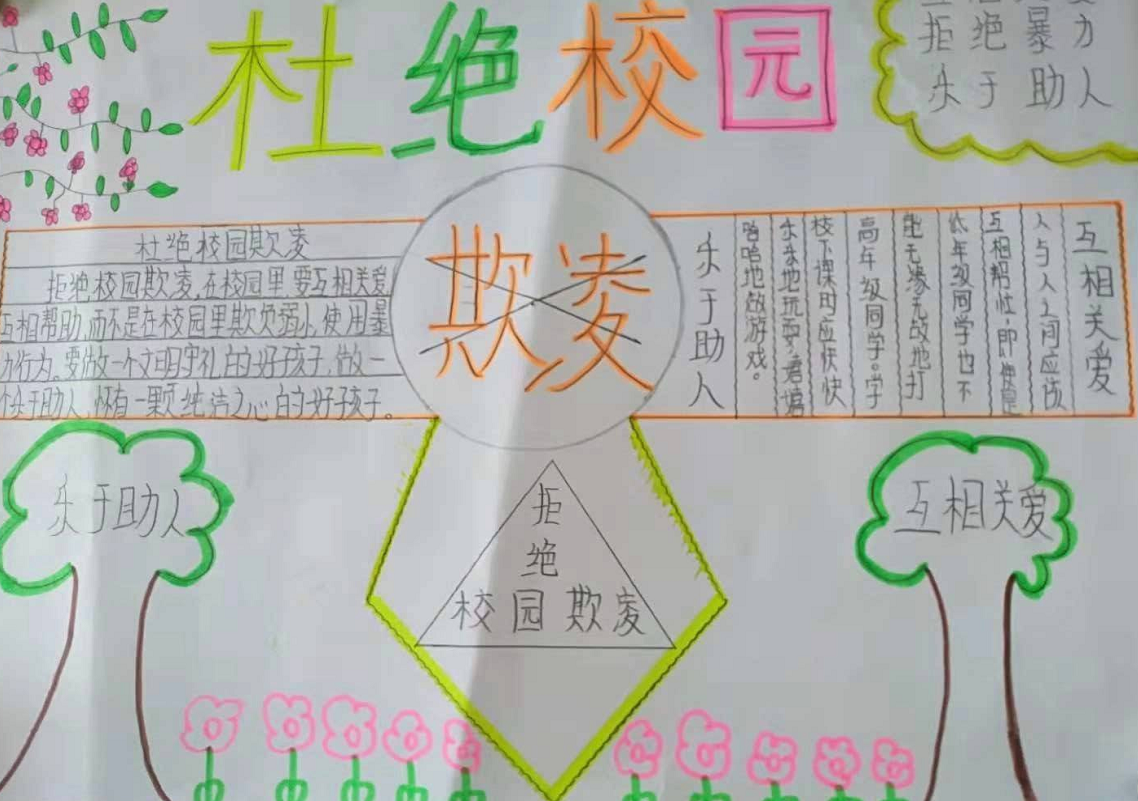 杜绝校园
拒绝暴力
乐于助人
欺凌
杜绝校园欺凌
拒绝校园欺凌,在校园里要互相关爱
互相帮助,而不是在校园里欺负弱小,使用暴
力行为。要做一个文明守礼的好孩子,做一
个乐于助人,怀有一颗纯洁之心的好孩子。
互相关爱
人与人之间应该
互相帮忙,即便是
低年级同学也不
能无缘无故地打
高年级同学。学
校下课时应快快
乐乐地玩耍,嘻嘻
哈哈地做游戏。
乐于助人
乐于助人
拒
绝
校园欺凌
互相关爱